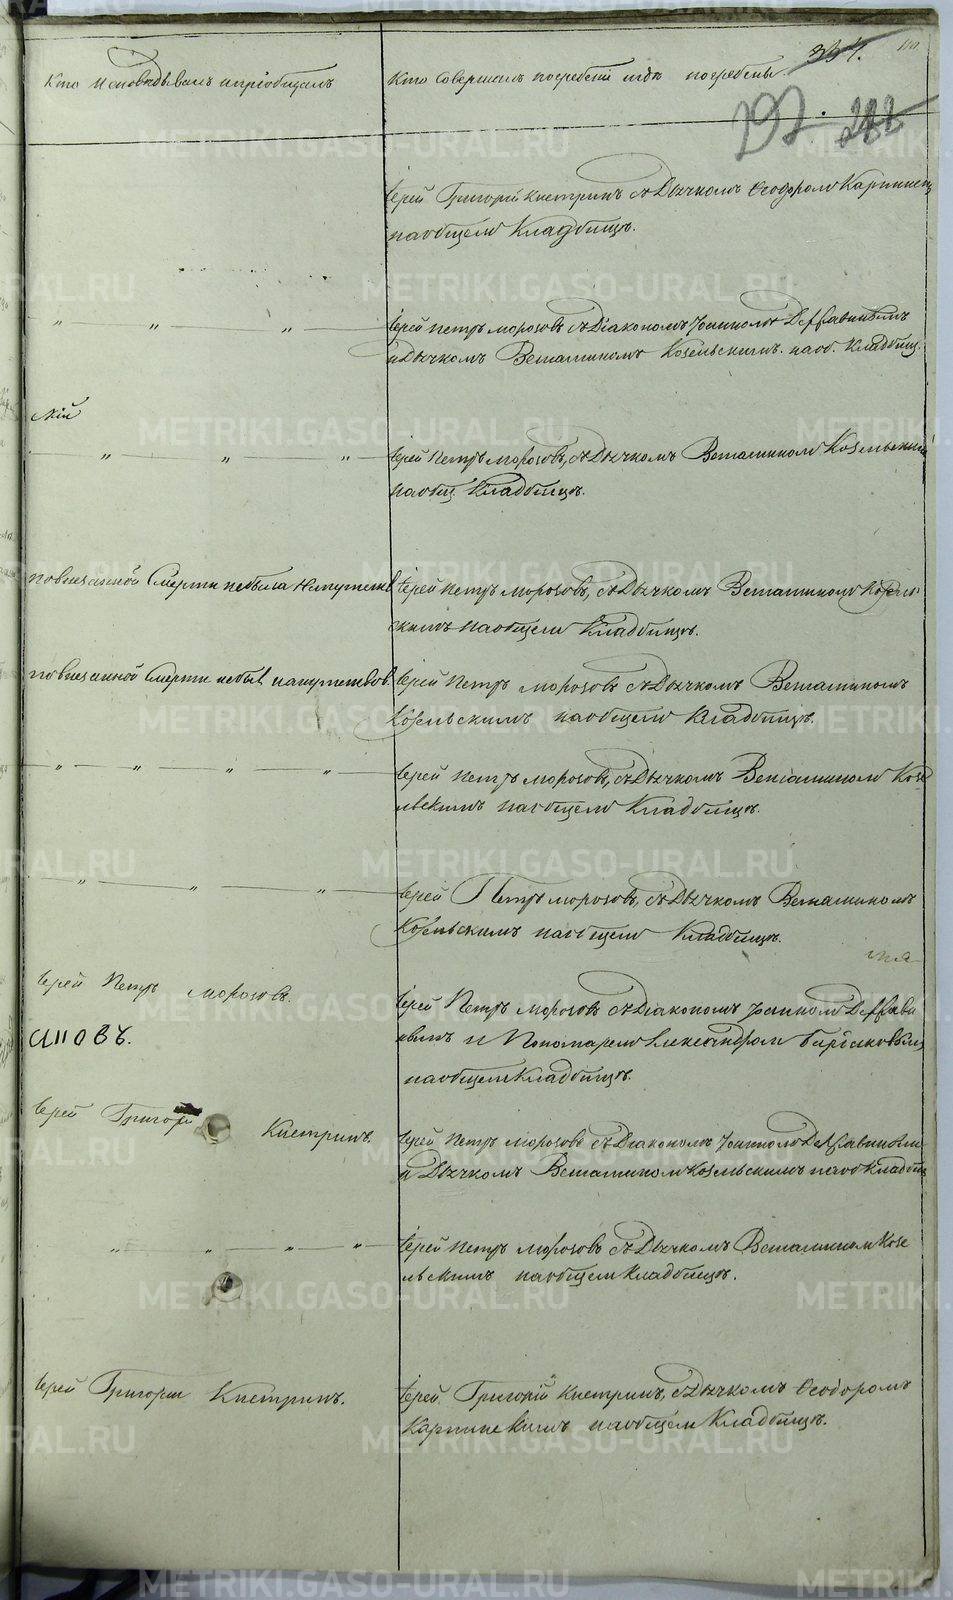 337.
292. 282
Кто исповѣдывалъ и пріобщалъ
Кто совершалъ погребеніе и гдѣ погребены
Іерей Григорій Кистринъ съ Дьячкомъ Ѳеодоромъ
на общемъ Кладбищѣ.
" " "
Іерей Петръ Морозовъ съ Діакономъ Іоанномъ
и Дьячкомъ Веніаминомъ Козельскимъ на об. Кладбищ.
скій
" " "
Іерей Петръ Морозовъ, съ Дьячкомъ Веніаминомъ Козельским
на общ. Кладбищѣ.
по внезапной Смерти небыла
Іерей Петръ Морозовъ, съ Дьячкомъ Веніаминомъ Козель
скимъ на общем Кладбищѣ.
по внезапной Смерти небылъ напутствов.
Іерей Петръ Морозовъ съ Дьячкомъ Веніаминомъ
Козельскимъ на общемъ Кладбищѣ.
" " " "
Іерей Петръ Морозовъ, съ Дьячкомъ Веніаминомъ Козе
льскимъ на общемъ Кладбищѣ.
" " "
Іерей Петръ Морозовъ, съ Дьячкомъ Веніаминомъ
Козельскимъ на общемъ Кладбищѣ.
Іерей Петръ Морозовъ.
Іерей Петръ Морозовъ съ Діакономъ Іоанномъ
и Пономаремъ Александром
на общем Кладбищѣ.
Іерей Григорій Кистринъ.
Іерей Петръ Морозовъ съ Діакономъ Іоанномъ
и Дьячкомъ Веніаминомъ Козельскимъ на об Кладбищ
" " " "
Іерей Петръ Морозовъ съ Дьячкомъ Веніаминомъ Козе
льскимъ на общем Кладбищѣ.
Іерей Григорій Кистринъ.
Іерей Григорій Кистринъ, съ Дьячкомъ Ѳеодоромъ
на общем Кладбищѣ.
METRIKI.GASO-URAL.RU